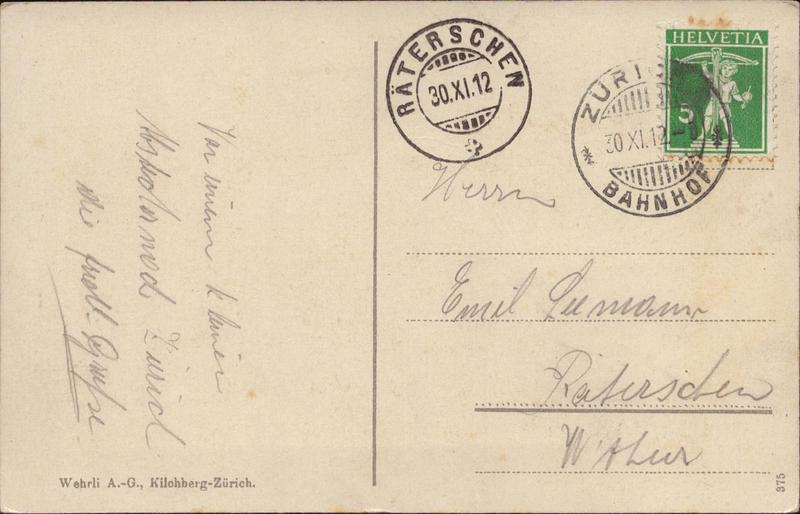 RÄTERSCHEN
30.XI.12
HELVETIA
5
ZÜRICH
30 XI.12.-8
BAHNHOF
Herrn
Emil Seemann
Räterschen
W'thur
Von einem kleinen
nach Zürich
die
Grüsse
Wehrli A.-G., Kilchberg-Zürich.
375